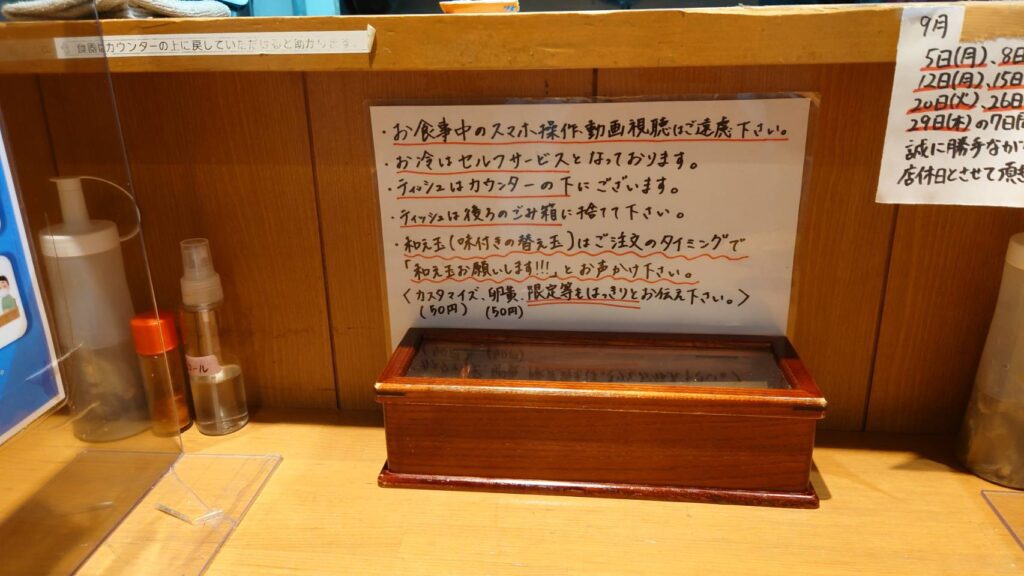 食器はカウンターの上に戻していただけると助かります。
・お食事中のスマホ操作、動画視聴はご遠慮下さい。
・お冷はセルフサービスとなっております。
・ティッシュはカウンターの下にございます。
・ティッシュは後ろのごみ箱に捨てて下さい。
・和え玉(味付きの替え玉)はご注文のタイミングで
「和え玉お願いします!!!」とお声かけ下さい。
〈カスタマイズ、卵黄、限定等もはっきりとお伝え下さい。〉
(50円) (50円)
9月
5日(月)、8日
12日(月)、15日
20日(火)、26日
29日(木)の7日間
誠に勝手なが
店休日とさせて頂き
ール